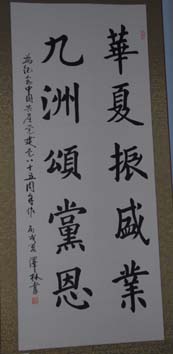 華夏振盛業
九洲頌黨恩
為紀念中國共産党建党八十五周年作
丙戌夏 澤林書